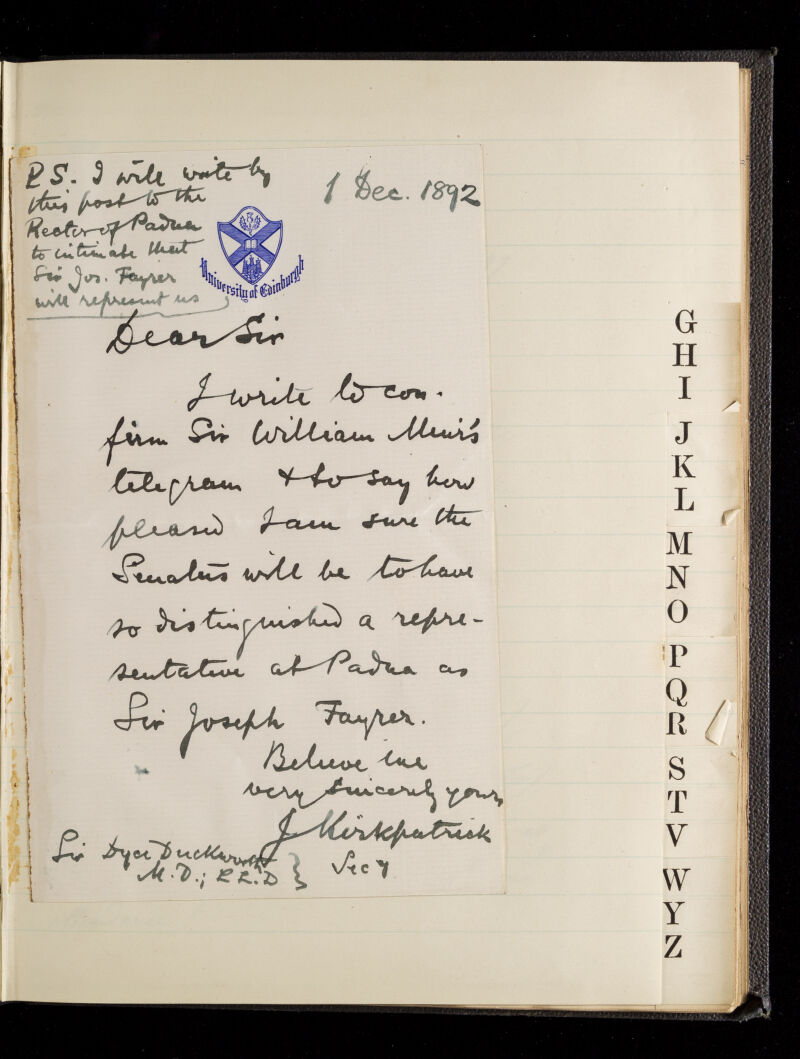 P.S. I will write by
this post to the
Rector of Padua
to intimate that
Sir Jos. Fayrer
will represent us
1 Dec. 1892
University of Edinburgh
Dear Sir
I write to con-
firm Sir William Muir's
telegram & to say how
pleased I am sure the
Senatus will be to have
so distinguished a repre-
sentative at Padua as
Sir Joseph Fayrer.
Believe me
very sincerely yours
J Kirkpatrick
Secy
Sir Dyce Duckworth
M.D.; LL.D
G
H
I
J
K
L
M
N
O
P
Q
R
S
T
V
W
Y
Z